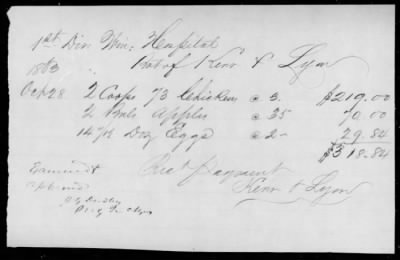 1st Div Win: Hospital
Bot of Kerr & Lyon
1863
Oct 28 2 Coops 73 Chickens @ 3. $219.00
2 Bbls Apples @ 35 70.00
14 Doz Eggs @ 2- 29.84
$318.84
Rec't payment
Kerr & Lyon
Examined